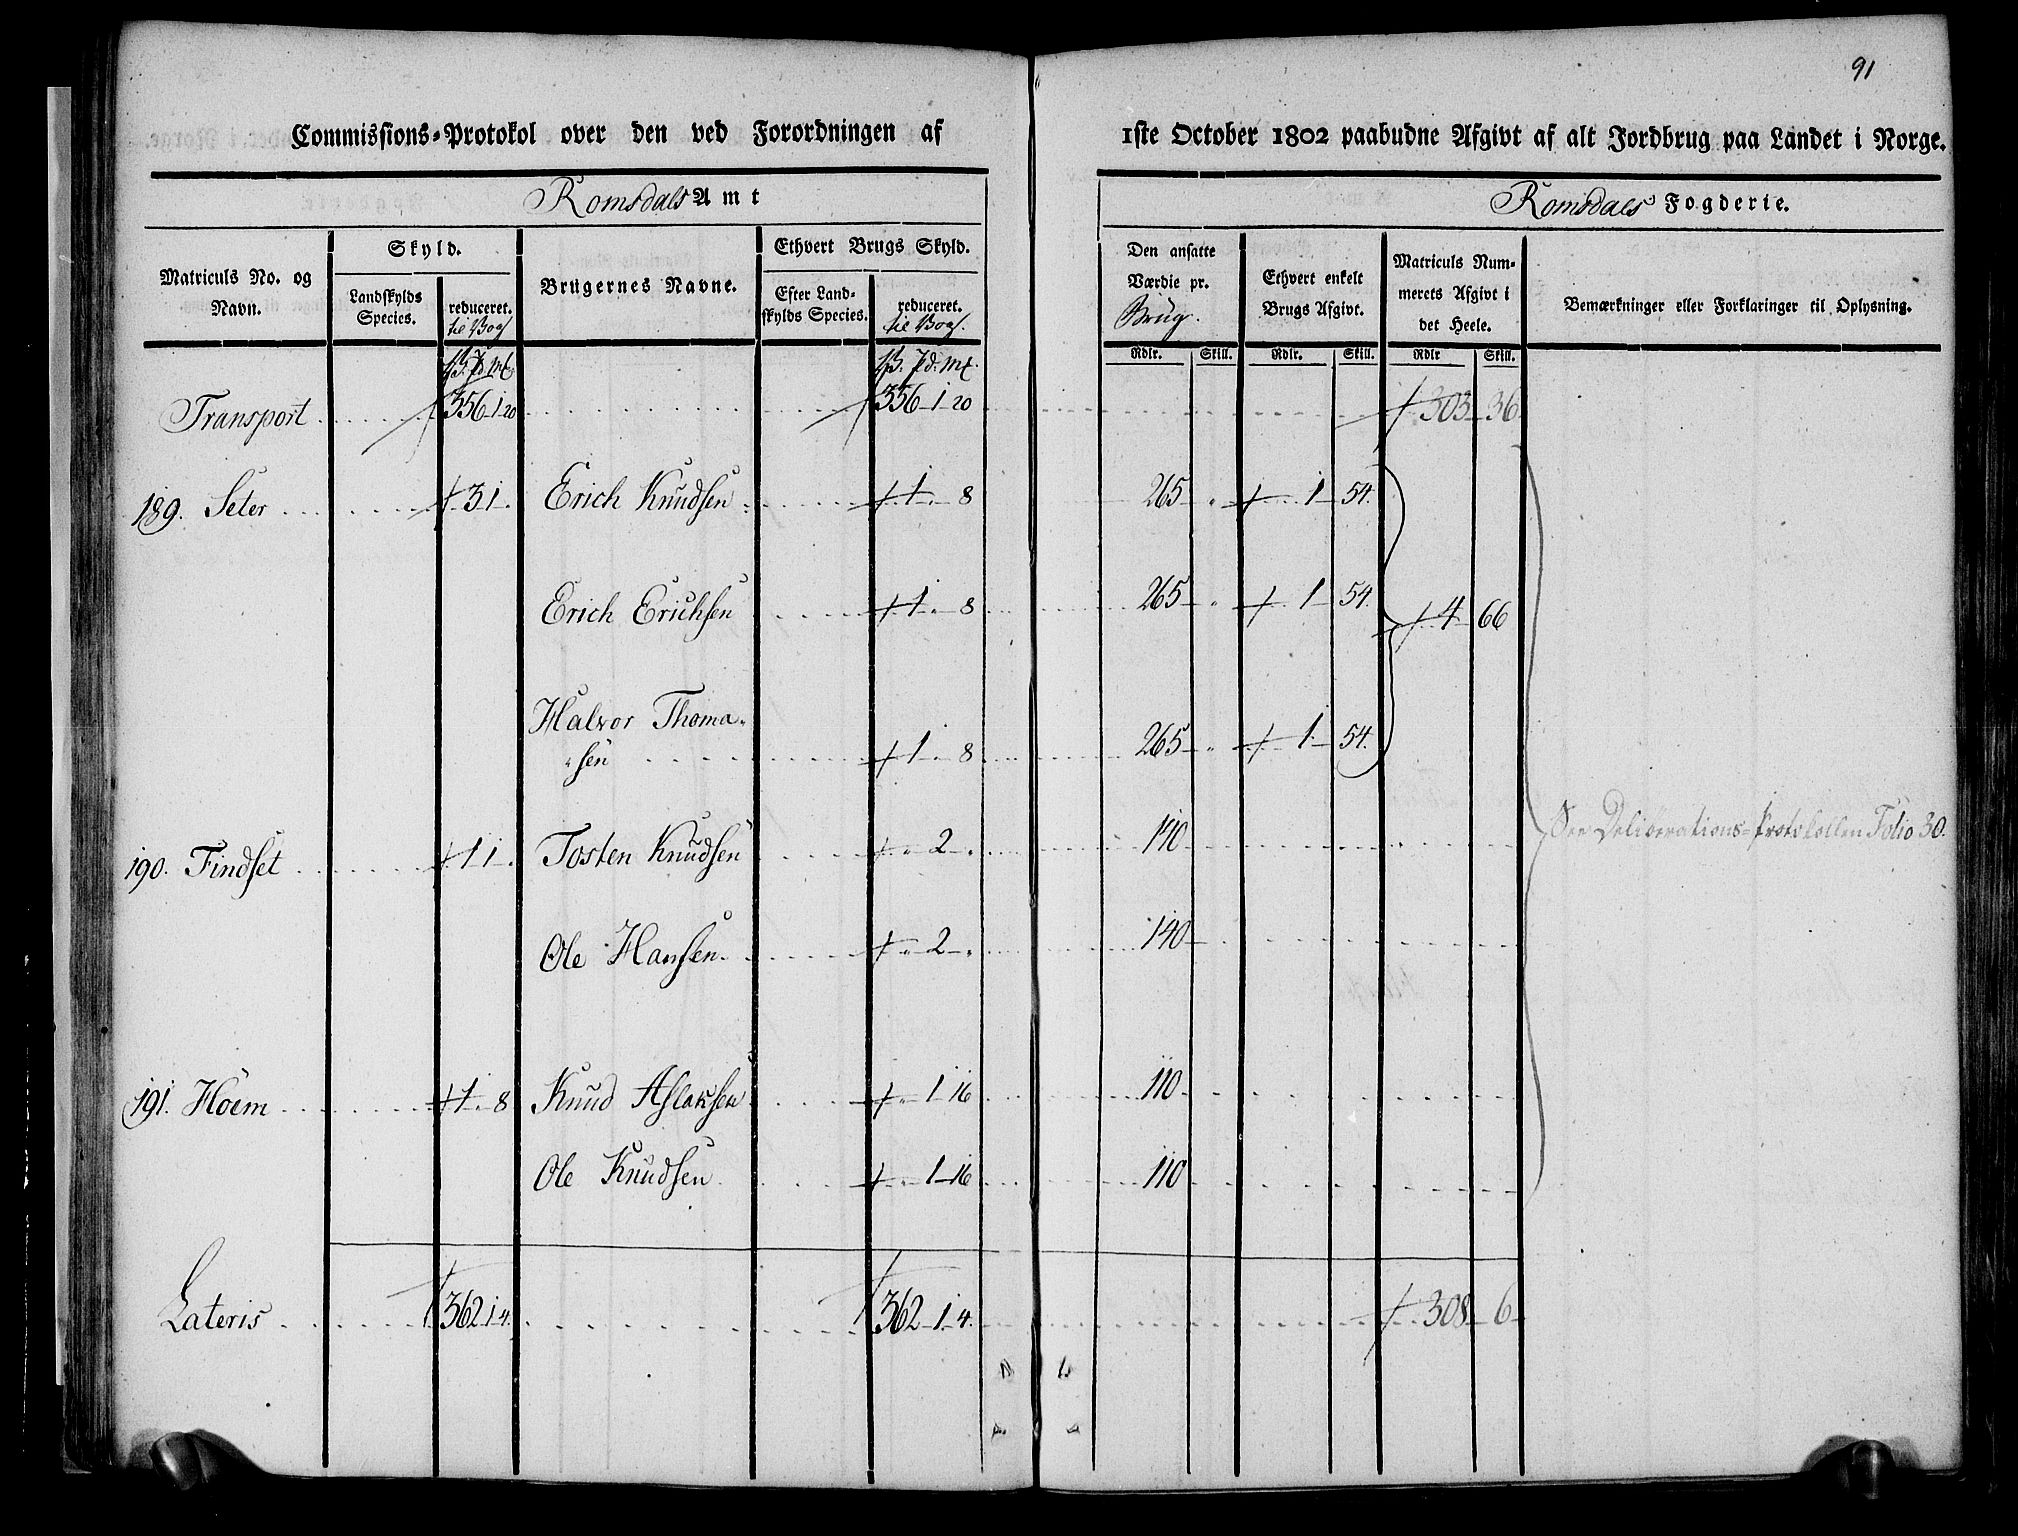 91
Commissions-Protokol over den ved Forordningen af 1ste October 1802 paabudne Afgivt af alt Jordbrug paa Landet i Norge.
Romsdals Amt
Romsdals Fogderie.
Matriculs No. og Navn.
Skyld.
Landskylds Species.
reduceret. til Vog.
Brugernes Navne.
Ethvert Brugs Skyld.
Efter Landskylds Species.
reduceret. til Vog.
Den ansatte Værdie pr. Brug.
Ethvert enkelt Brugs Afgivt.
Matriculs Nummerets Afgivt i det Heele.
Bemærkninger eller Forklaringer til Oplysning.
Rdlr. Skill. Rdlr. Skill. Rdlr Skill.
Transport 356 1 20 356 1 20 303 36
189. Seter 3 1 Erich Knudsen 1 8 265 1 54
Erich Erichsen 1 8 265 1 54 4 66
Halvor Thoma-
sen 1 8 265 1 54
190. Findset 1 1 Tosten Knudsen 2 140 See Deliberations-Protokollen Folio 30.
Ole Hansen 2 140
191. Hoem 1 8 Knud Aslaksen 1 16 110
Ole Knudsen 1 16 110
Lateris 362 1 4 362 1 4 308 6